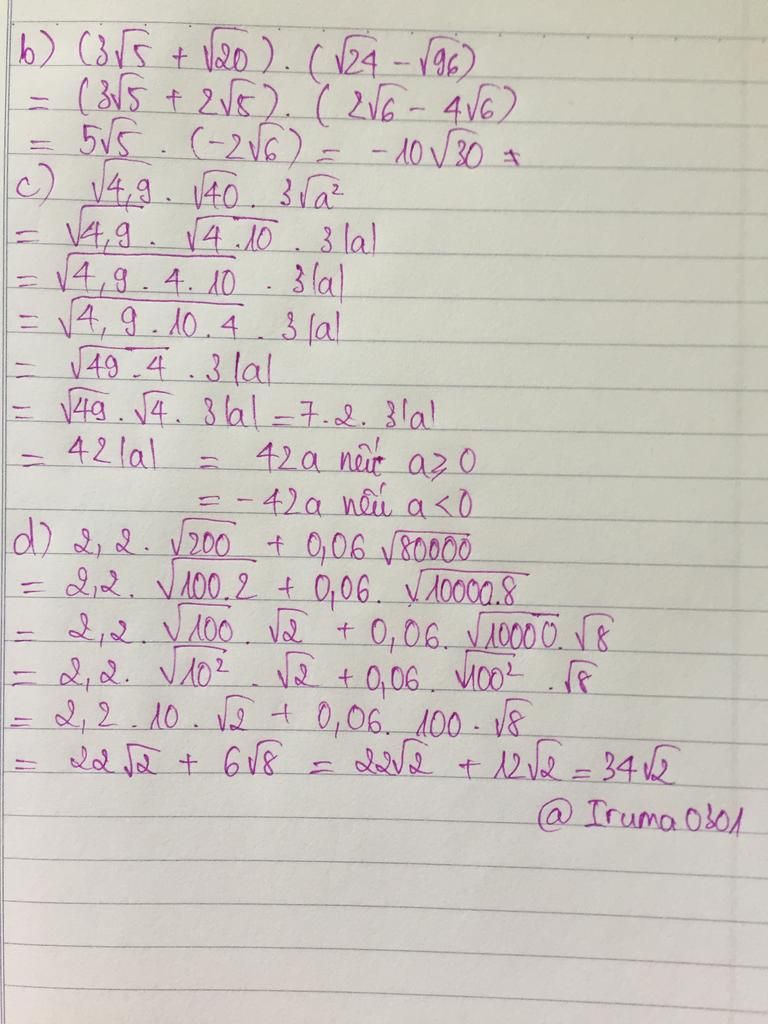 b) (3√5 + √20) . (√24 - √96)
= (3√5 + 2√5) . (2√6 - 4√6)
= 5√5 . (-2√6) = -10√30 *
c) √4,9 . √40 . 3√a²
= √4,9 . √4.10 . 3|a|
= √4,9 . 4. 10 . 3|a|
= √4,9 . 10. 4 . 3|a|
= √49 . 4 . 3|a|
= √49 . √4 . 3|a| = 7. 2. 3|a|
= 42|a| = 42a nếu a ≥ 0
= - 42a nếu a < 0
d) 2,2. √200 + 0,06 √80000
= 2,2. √100.2 + 0,06. √10000.8
= 2,2. √100 . √2 + 0,06. √10000 . √8
= 2,2. √10² . √2 + 0,06. √100² . √8
= 2,2 . 10 . √2 + 0,06. 100 . √8
= 22√2 + 6√8 = 22√2 + 12√2 = 34√2
@ Iruma0301